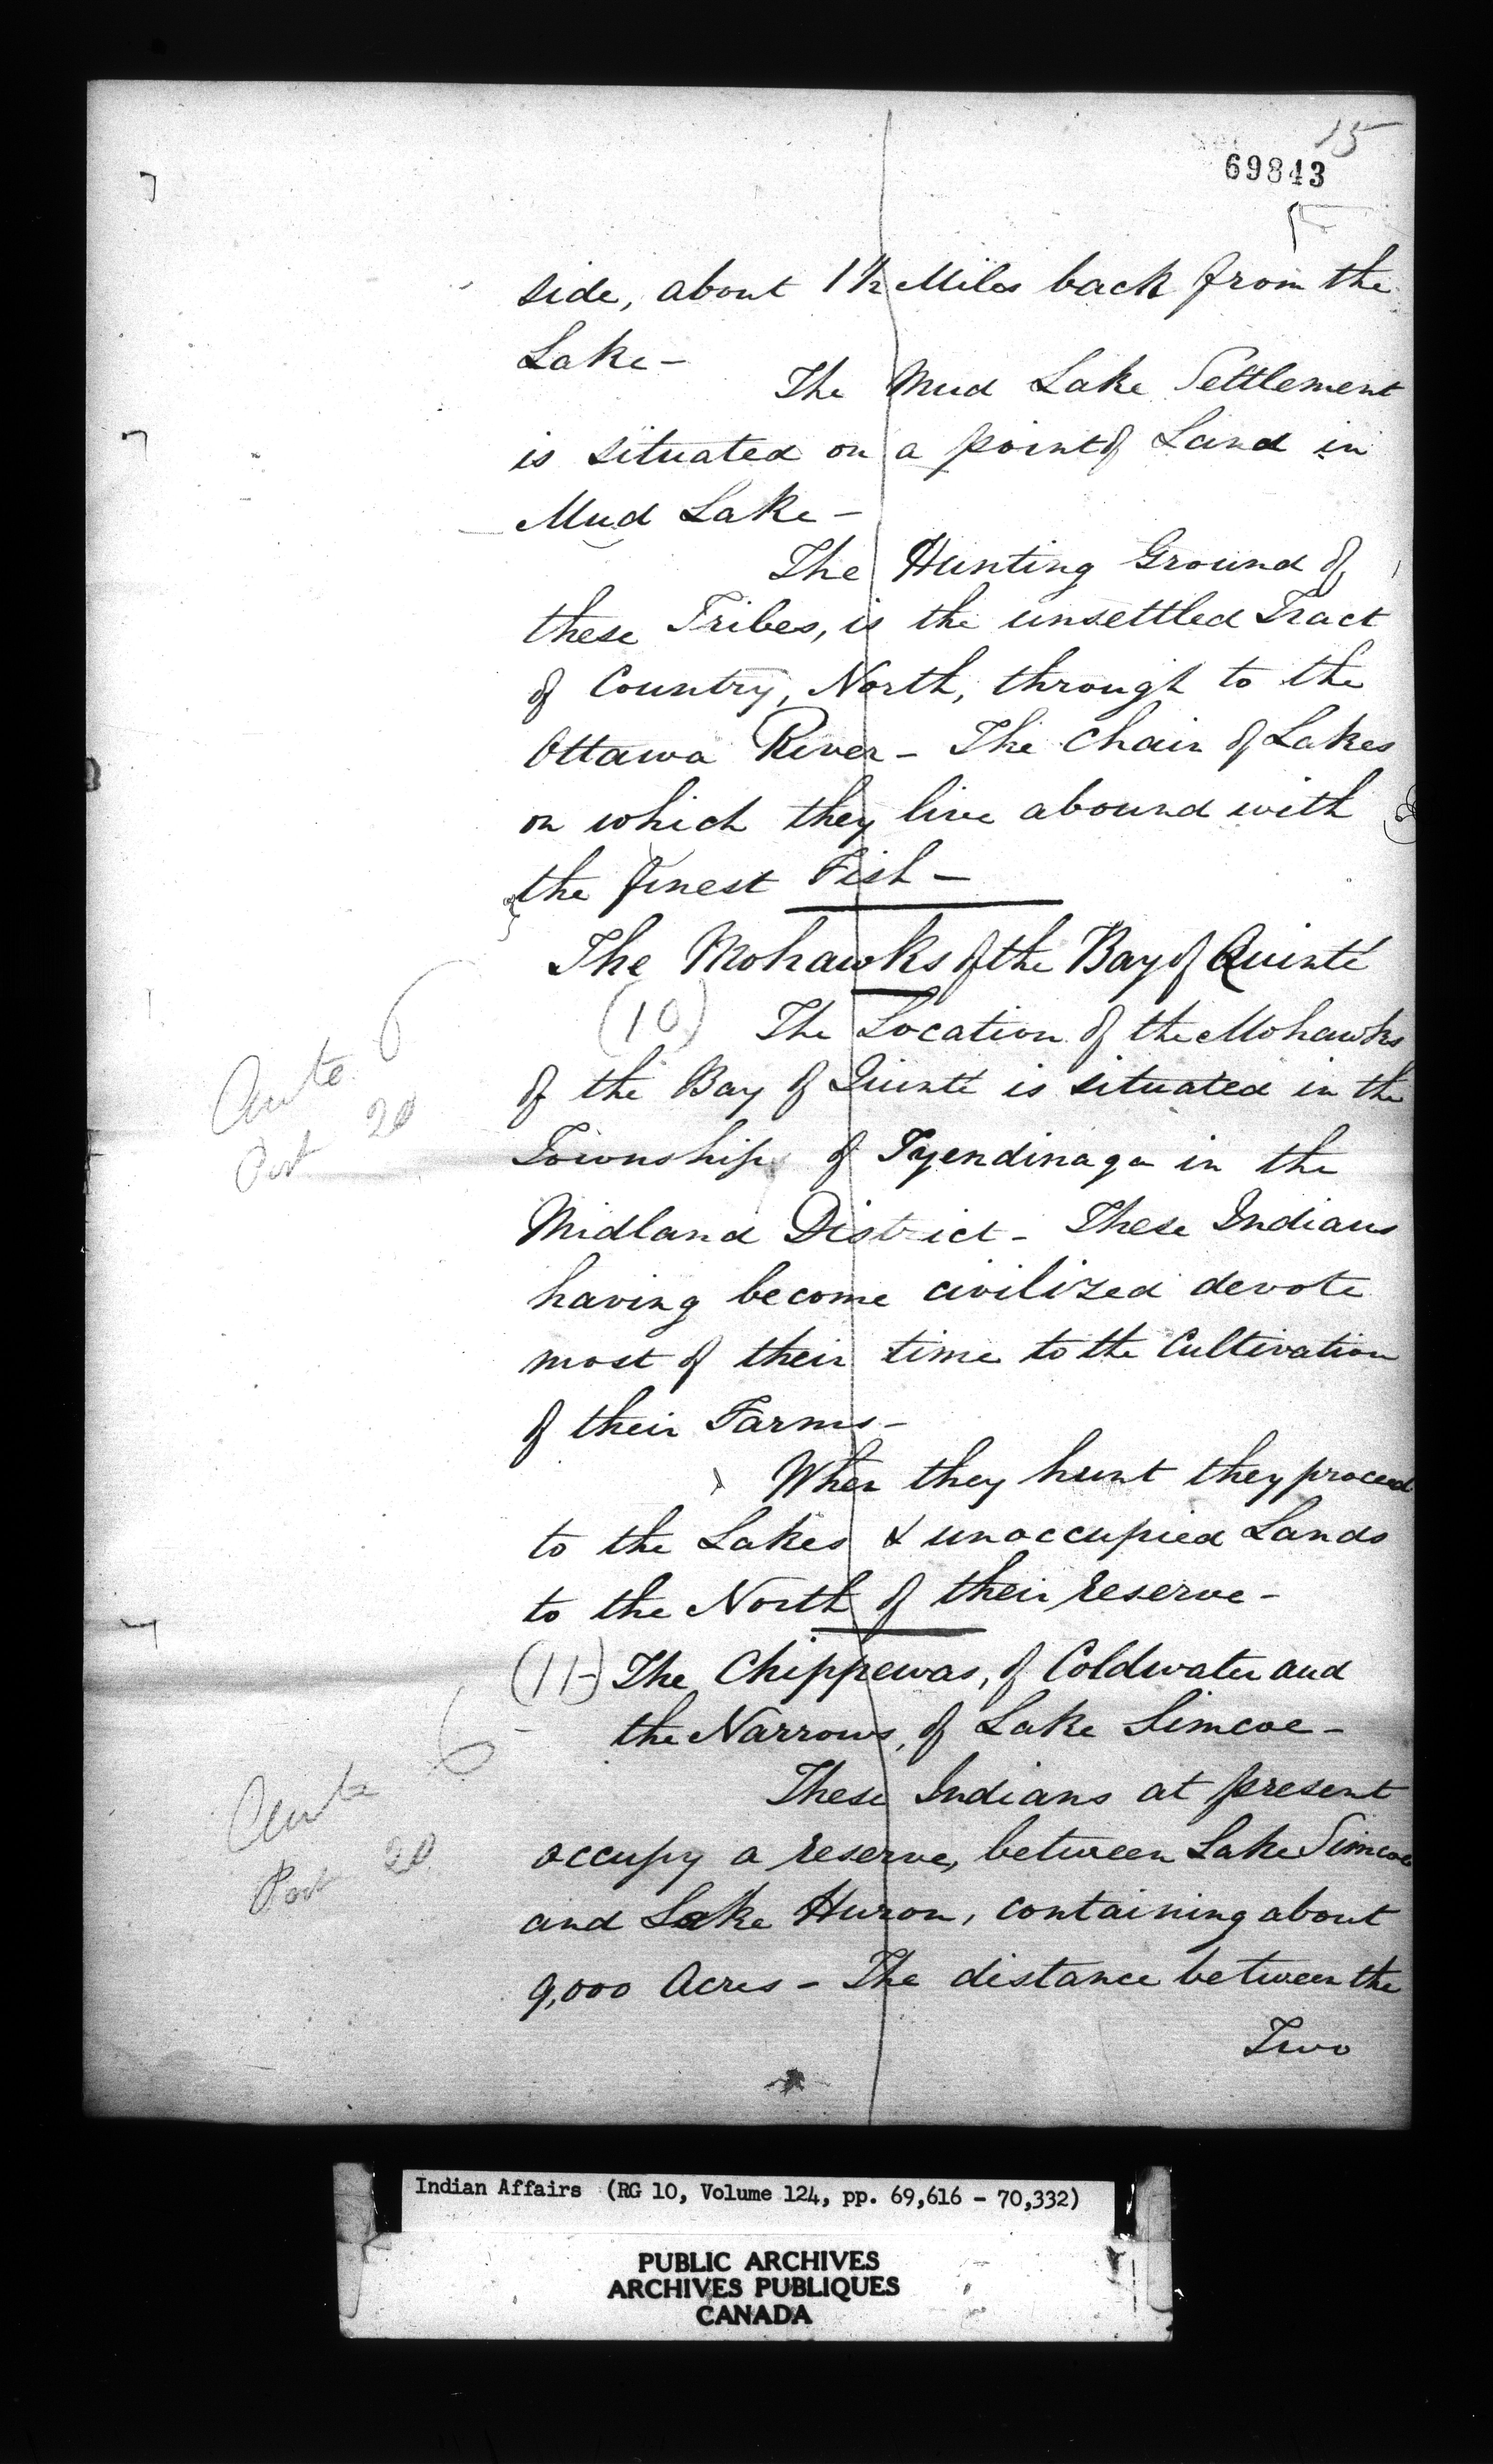 15
69843
side, about 1 1/2 Miles back from the
Lake -
The Mud Lake Settlement
is situated on a point of Land in
Mud Lake -
The Hunting Ground of
these Tribes, is the unsettled Tract
of Country, North, through to the
Ottawa River - The Chain of Lakes
on which they live abound with
the finest Fish -
The Mohawks of the Bay of Quinté
(10) The Location of the Mohawks
Ante 6
of the Bay of Quinté is situated in the
Post 20
Township of Tyendinaga in the
Midland District - These Indians
having become civilized devote
most of their time to the Cultivation
of their Farms -
When they hunt they proceed
to the Lakes & unoccupied Lands
to the North of their reserve -
(11) The Chippewas, of Coldwater and
the Narrows, of Lake Simcoe -
Ante 6
These Indians at present
occupy a reserve, between Lake Simcoe
Post 20
and Lake Huron, containing about
9,000 Acres - The distance between the
Two
Indian Affairs (RG 10, Volume 124, pp. 69,616 - 70,332)
PUBLIC ARCHIVES
ARCHIVES PUBLIQUES
CANADA